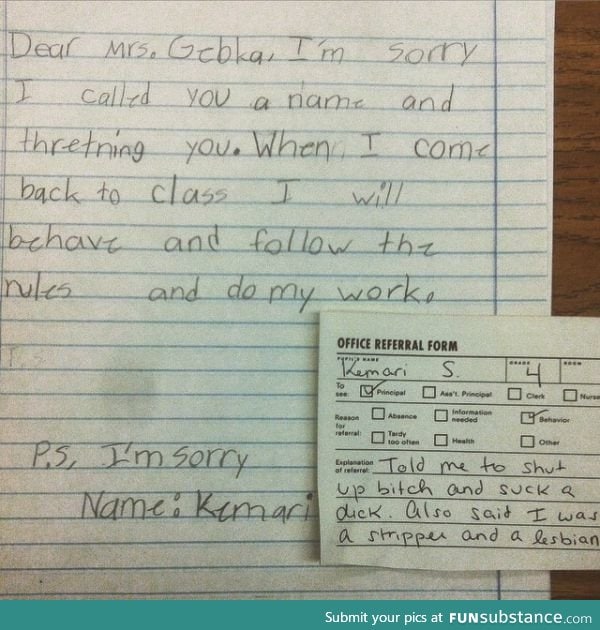 Dear Mrs. Gebka, I'm sorry
I called you a name and
thretning you. When I come
back to class I will
behave and follow the
rules and do my work.
P.S.
P.S. I'm sorry
Name: Kemari
OFFICE REFERRAL FORM
PUPIL'S NAME GRADE ROOM
Kemari S. 4
To see: Principal Ass't. Principal Clerk Nurse
Reason for referral: Absence Information needed Behavior
Tardy too often Health Other
Explanation of referral: Told me to shut
up bitch and suck a
dick. Also said I was
a stripper and a lesbian
Submit your pics at FUNsubstance.com